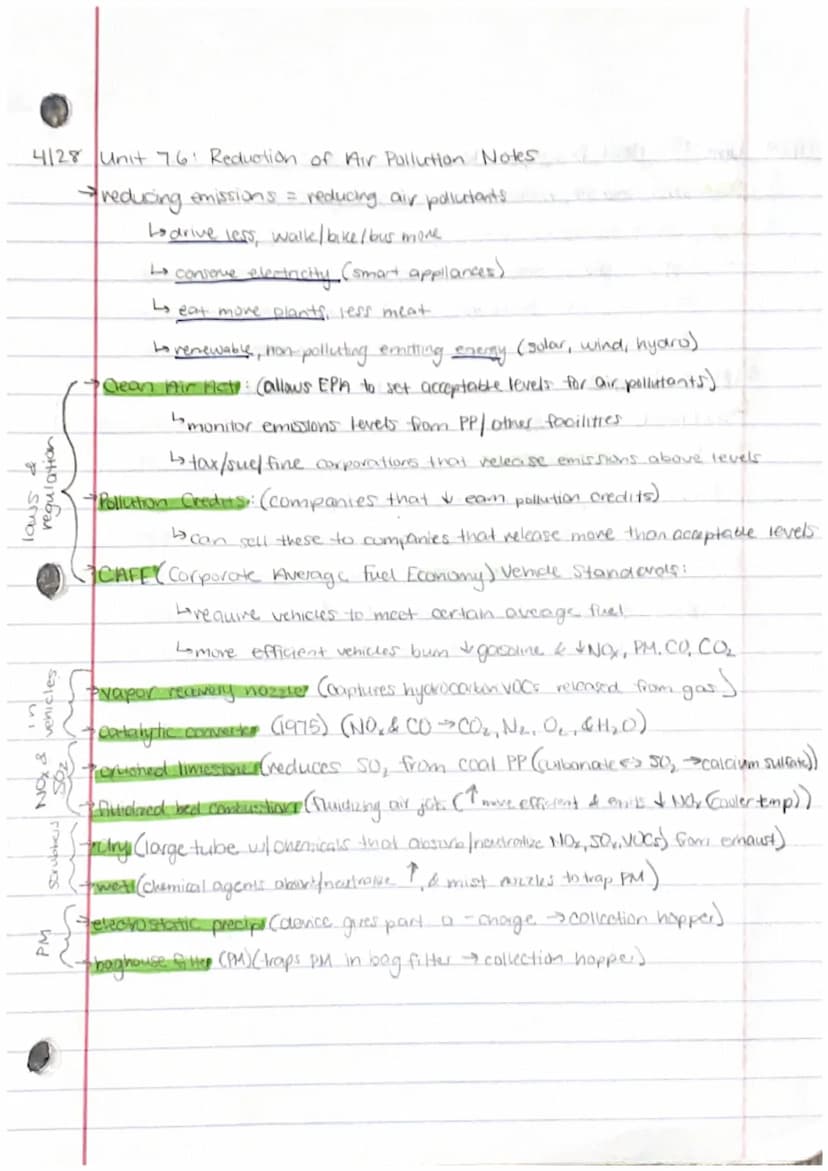 4/28 Unit 7.6: Reduction of Air Pollution Notes
→ reducing emissions = reducing air pollutants
↳ drive less, walk/bike/bus more
↳ conserve electricity (smart appliances)
↳ eat more plants, less meat
↳ renewable, non-polluting emitting energy (solar, wind, hydro)
laws & regulation
→ Clean Air Act: (allows EPA to set acceptable levels for air pollutants)
↳ monitor emissions levels from PP/other facilities
↳ tax/sue/fine corporations that release emissions above levels
→ Pollution Credits: (companies that ↓ earn pollution credits)
↳ can sell these to companies that release more than acceptable levels
→ CAFE (Corporate Average Fuel Economy) Vehicle Standards:
↳ require vehicles to meet certain average fuel
↳ more efficient vehicles burn ↓ gasoline & ↓ NOx, PM, CO, CO2
in vehicles
→ vapor recovery nozzle (captures hydrocarbon VOCs released from gas)
→ catalytic converter (1975) (NOx & CO → CO2, N2, O2, & H2O)
NOx & SO2
→ crushed limestone (reduces SO2 from coal PP (carbonate ⇔ SO2 → calcium sulfate))
→ fluidized bed combustion (fluidizing air jets (↑ more efficient & emits ↓ NOx (cooler temp))
scrubbers
→ dry (large tube w/ chemicals that absorb/neutralize NOx, SOx, VOCs) from exhaust)
→ wet (chemical agents absorb/neutralize ↑, & mist nozzles to trap PM)
PM
→ electrostatic precip (device gives part a - charge → collection hopper)
→ baghouse filter (PM) (traps PM in bag filter → collection hopper)